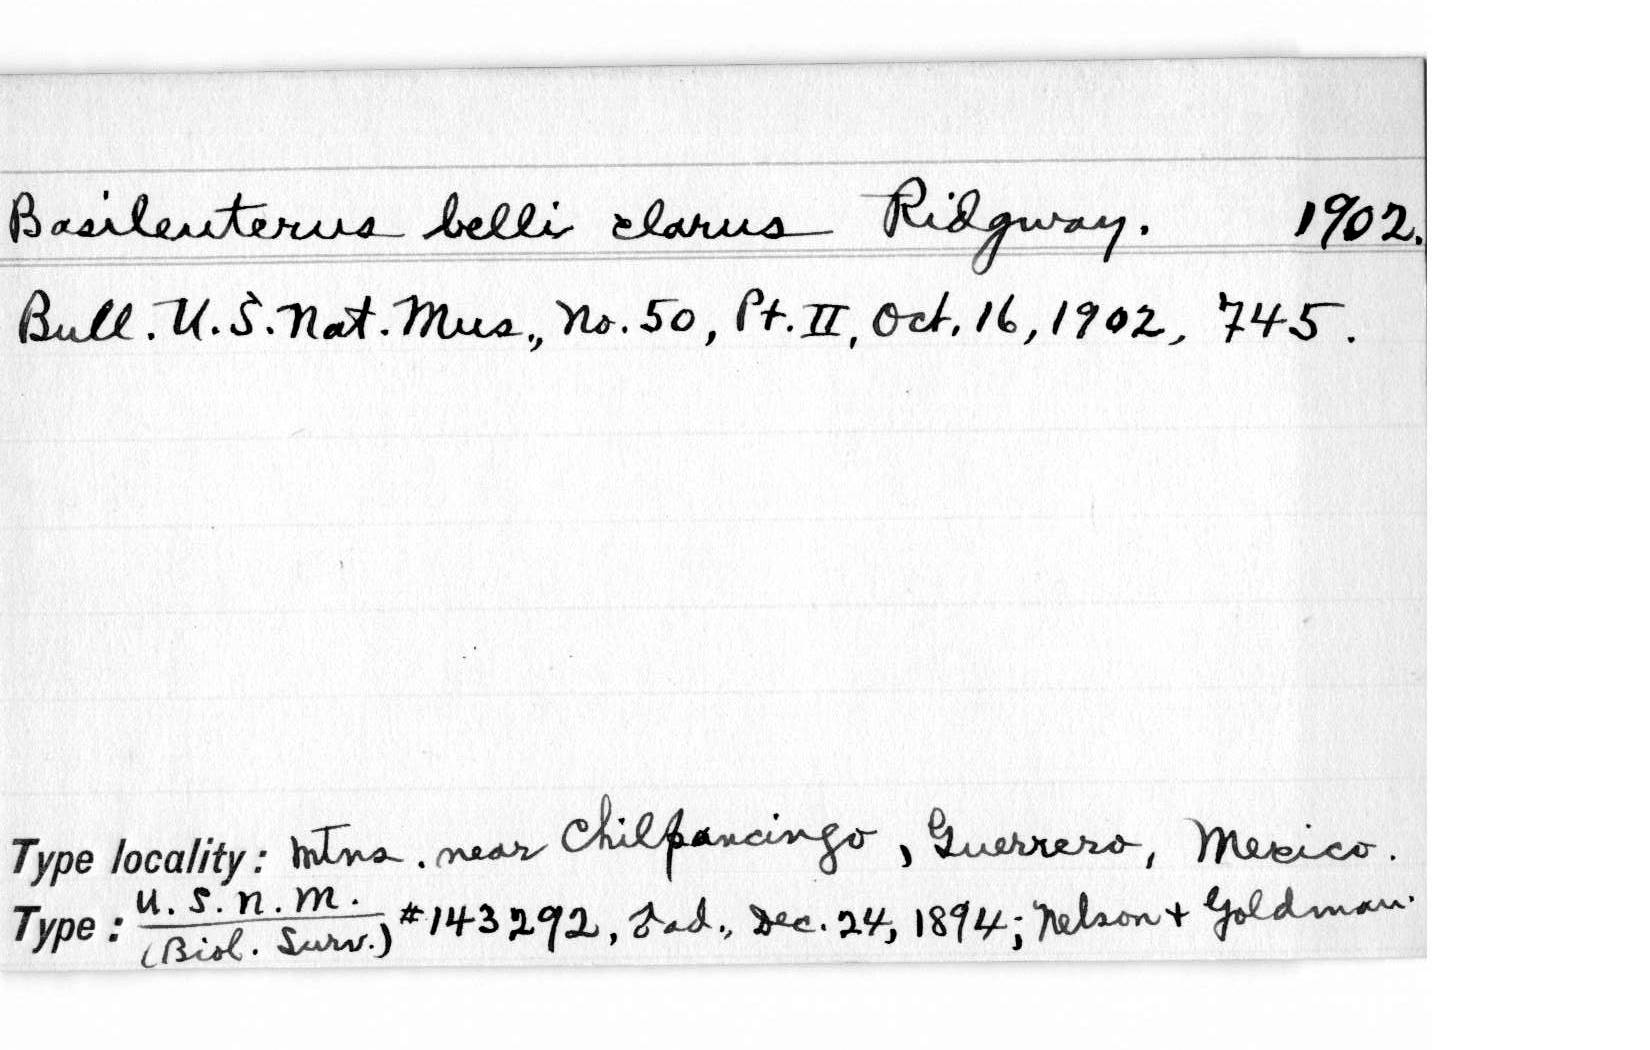 Basileuterus belli clarus Ridgway. 1902.
Bull. U.S. Nat. Mus., No. 50, Pt. II, Oct. 16, 1902, 745.
Type locality: Mtns. near Chilpancingo, Guerrero, Mexico.
Type: U.S.N.M. (Biol. Surv.) #143292, ad., Dec. 24, 1894; Nelson + Goldman.